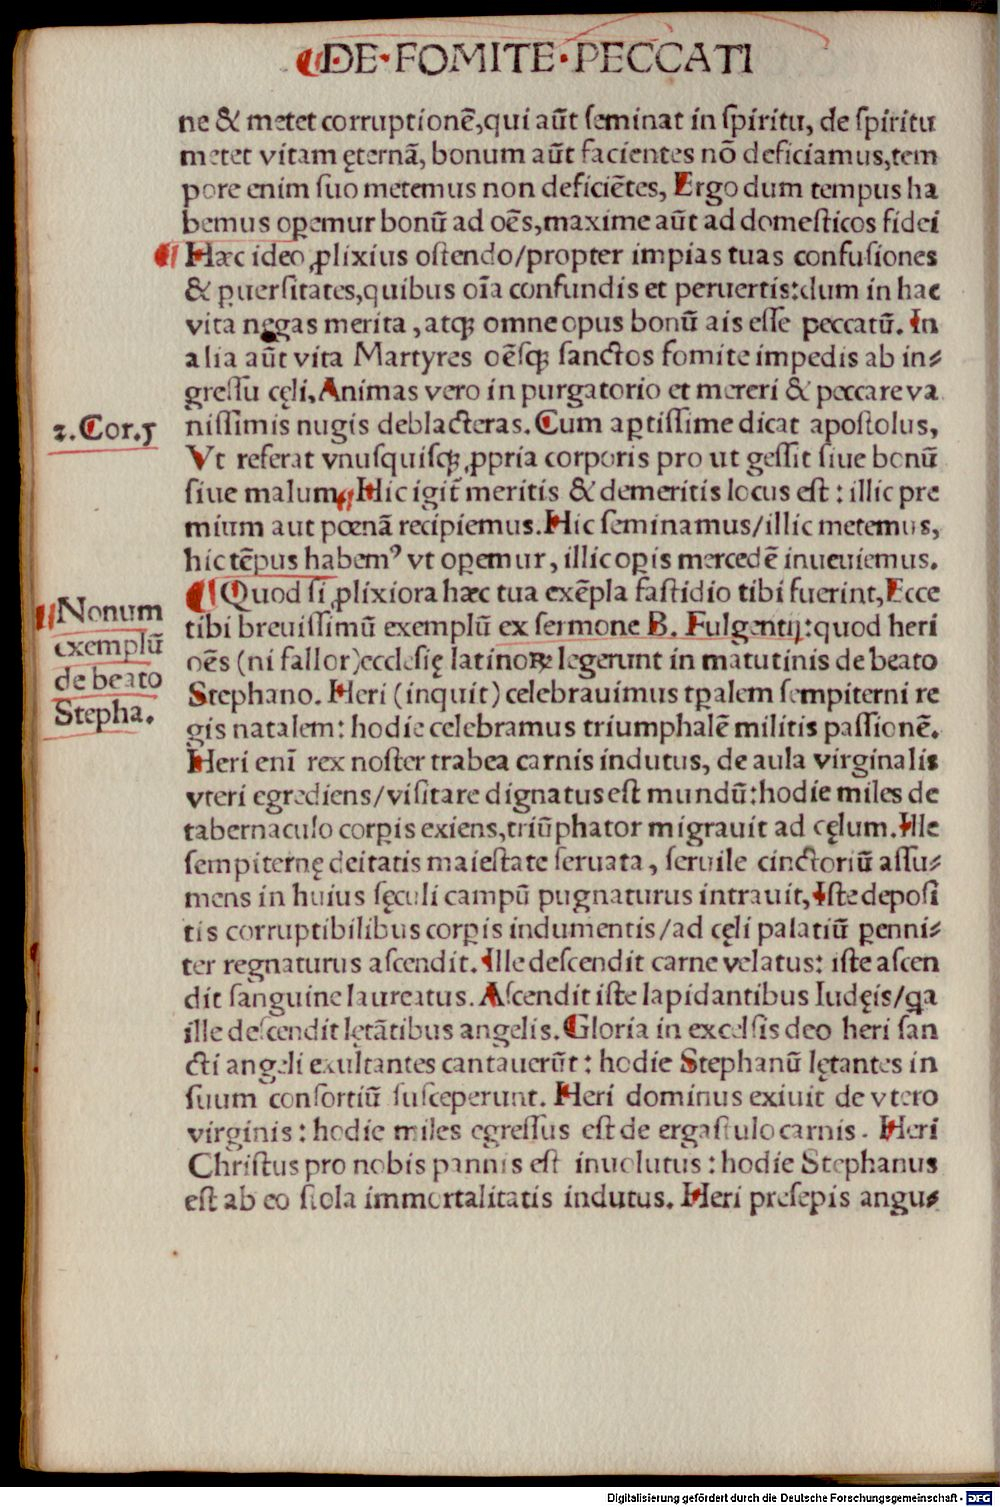 ¶DE·FOMITE·PECCATI
ne & metet corruptionē,qui aūt seminat in spiritu, de spiritu
metet vitam ęternā, bonum aūt facientes nō deficiamus,tem
pore enim suo metemus non deficiētes, Ergo dum tempus ha
bemus oꝑemur bonū ad oēs,maxime aūt ad domesticos fidei
¶ Hæc ideo ꝓlixius ostendo/propter impias tuas confusiones
& ꝑuersitates,quibus oīa confundis et peruertis:dum in hac
vita negas merita, atqꝫ omne opus bonū ais esse peccatū. In
alia aūt vita Martyres oēsqꝫ sanctos fomite impedis ab in⸗
gressu cęli, Animas vero in purgatorio et mereri & peccare va
2. Cor. 5
nissimis nugis deblacteras. Cum aptissime dicat apostolus,
Vt referat vnusquisqꝫ ꝓpria corporis pro ut gessit siue bonū
siue malum¶ Hic igit̄ meritis & demeritis locus est : illic pre
mium aut pœnā recipiemus. Hic seminamus/illic metemus,
hic tēpus habemꝰ vt oꝑemur, illic oꝑis mercedē inueniemus.
¶ Nonum
exemplū
de beato
Stepha.
¶ Quod si ꝓlixiora hæc tua exēpla fastidio tibi fuerint, Ecce
tibi breuissimū exemplū ex sermone B. Fulgentij:quod heri
oēs (ni fallor)ecclesię latinoꝝ legerunt in matutinis de beato
Stephano. Heri (inquit) celebrauimus tꝑalem sempiterni re
gis natalem: hodie celebramus triumphalē militis passionē.
Heri enī rex noster trabea carnis indutus, de aula virginalis
vteri egrediens/visitare dignatus est mundū:hodie miles de
tabernaculo corꝑis exiens,triūphator migrauit ad cęlum. Ille
sempiternę deitatis maiestate seruata, seruile cinctoriū assu⸗
mens in huius sęculi campū pugnaturus intrauit, Iste deposi
tis corruptibilibus corꝑis indumentis/ad cęli palatiū ꝑenni⸗
ter regnaturus ascendit. Ille descendit carne velatus: iste ascen
dit sanguine laureatus. Ascendit iste lapidantibus Iudęis/ꝗa
ille descendit lętātibus angelis. Gloria in excelsis deo heri san
cti angeli exultantes cantauerūt : hodie Stephanū lętantes in
suum consortiū susceperunt. Heri dominus exiuit de vtero
virginis : hodie miles egressus est de ergastulo carnis. Heri
Christus pro nobis pannis est inuolutus : hodie Stephanus
est ab eo stola immortalitatis indutus. Heri presepis angu⸗
Digitalisierung gefördert durch die Deutsche Forschungsgemeinschaft - DFG